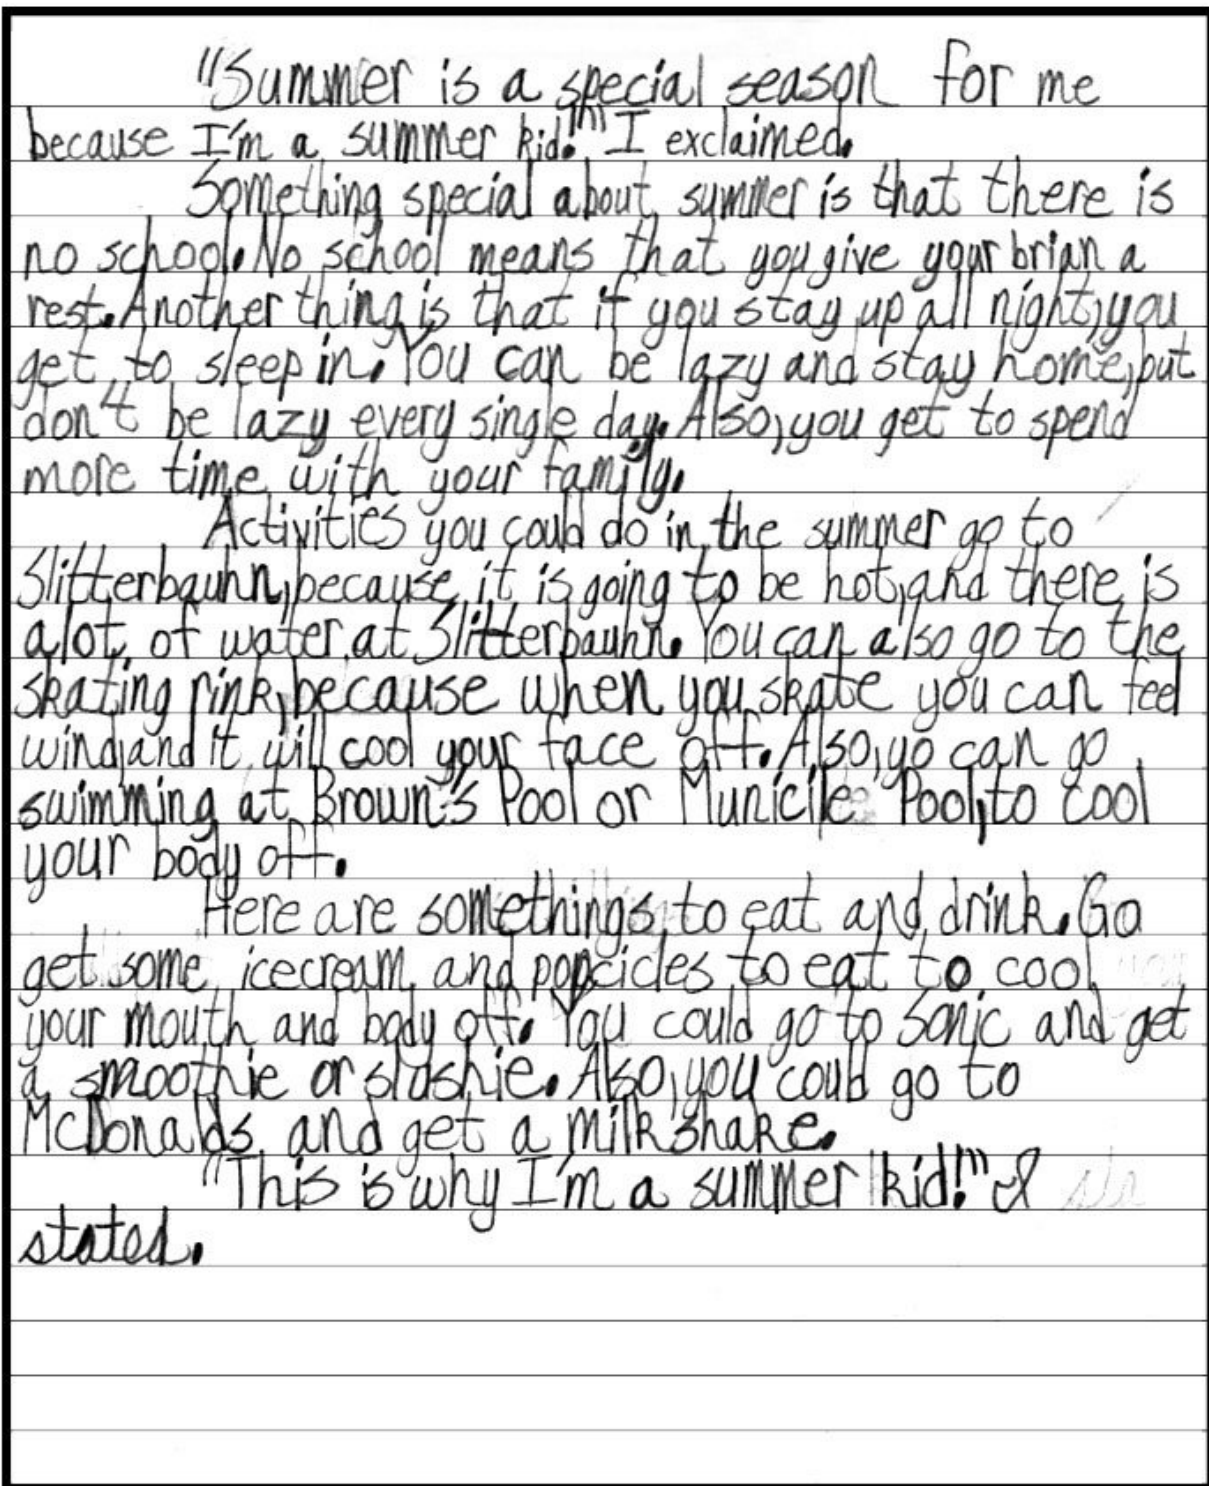 "Summer is a special season for me
because I'm a summer kid!" I exclaimed.
Something special about summer is that there is
no school. No school means that you give your brian a
rest. Another thing is that if you stay up all night, you
get to sleep in. You can be lazy and stay home, but
don't be lazy every single day. Also, you get to spend
more time with your family.
Activities you could do in the summer go to
Slitterbauhn, because it is going to be hot, and there is
alot of water at Slitterbauhn. You can also go to the
skating rink, because when you skate you can feel
wind, and it will cool your face off. Also, yo can go
swimming at Brown's Pool or Municile Pool, to cool
your body off.
Here are somethings to eat and drink. Go
get some icecream and popcicles to eat to cool
your mouth and body off. You could go to Sonic and get
a smoothie or slushie. Also, you coub go to
McDonalds and get a milkshake.
"This is why I'm a summer kid!" I
stated.